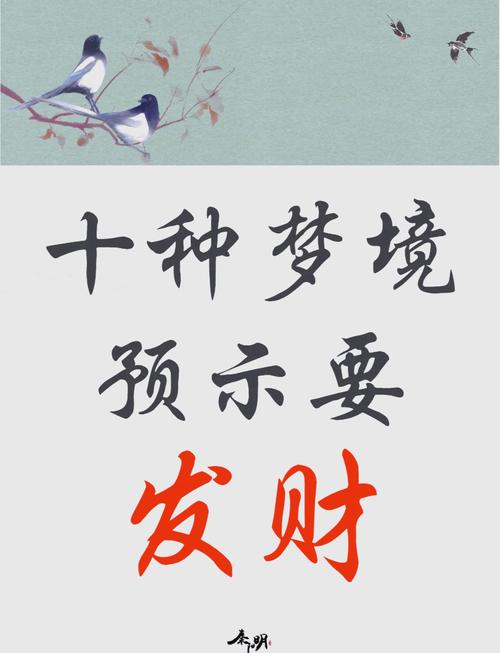 十种梦境
预示要
发财
秦明